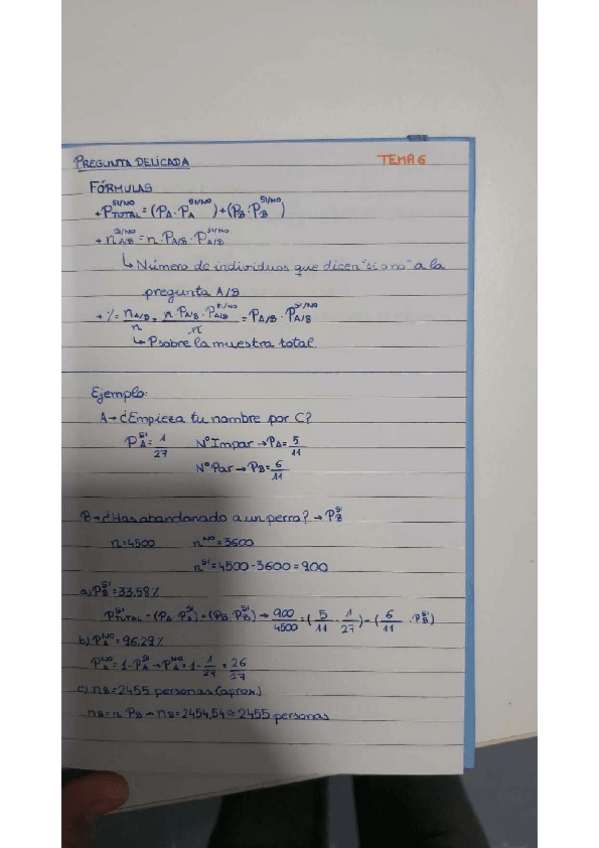 PREGUNTA DELICADA TEMA 6
FÓRMULAS
+ P_TOTAL^SI/NO = (P_A · P_A^SI/NO) + (P_B · P_B^SI/NO)
+ n_A/B^SI/NO = n · P_A/B · P_A/B^SI/NO
↳ Número de individuos que dicen "si o no" a la
pregunta A/B
+ % = n_A/B / n = n · P_A/B · P_A/B^SI/NO / n = P_A/B · P_A/B^SI/NO
↳ P sobre la muestra total.
Ejemplo:
A → ¿Empieza tu nombre por C?
P_A^SI = 1/27 Nº Impar → P_A = 5/11
Nº Par → P_B = 6/11
B → ¿Has abandonado a un perro? → P_B^SI
n = 4500 n^NO = 3600
n^SI = 4500 - 3600 = 900
a) P_B^SI = 33.58%
P_TOTAL^SI = (P_A · P_A^SI) + (P_B · P_B^SI) → 900/4500 = (5/11 · 1/27) + (6/11 · P_B^SI)
b) P_A^NO = 96.29%
P_A^NO = 1 - P_A^SI → P_A^NO = 1 - 1/27 = 26/27
c) n_B = 2455 personas (aprox)
n_B = n · P_B → n_B = 2454,54 ≃ 2455 personas